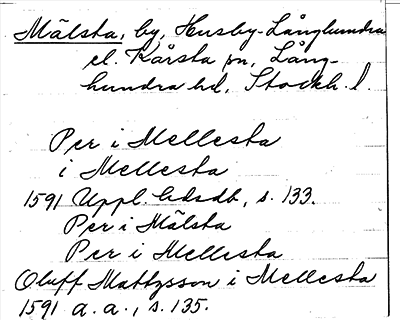 Mälsta, by, Husby-Långhundra
el. Kårsta sn, Lång-
hundra hd, Stockh. l.
Per i Mellesta
i Mellesta
1591 Uppl. hdsdb, s. 133.
Per i Mälsta
Per i Mellesta
Oluff Mattzsson i Mellesta
1591 a. a., s. 135.